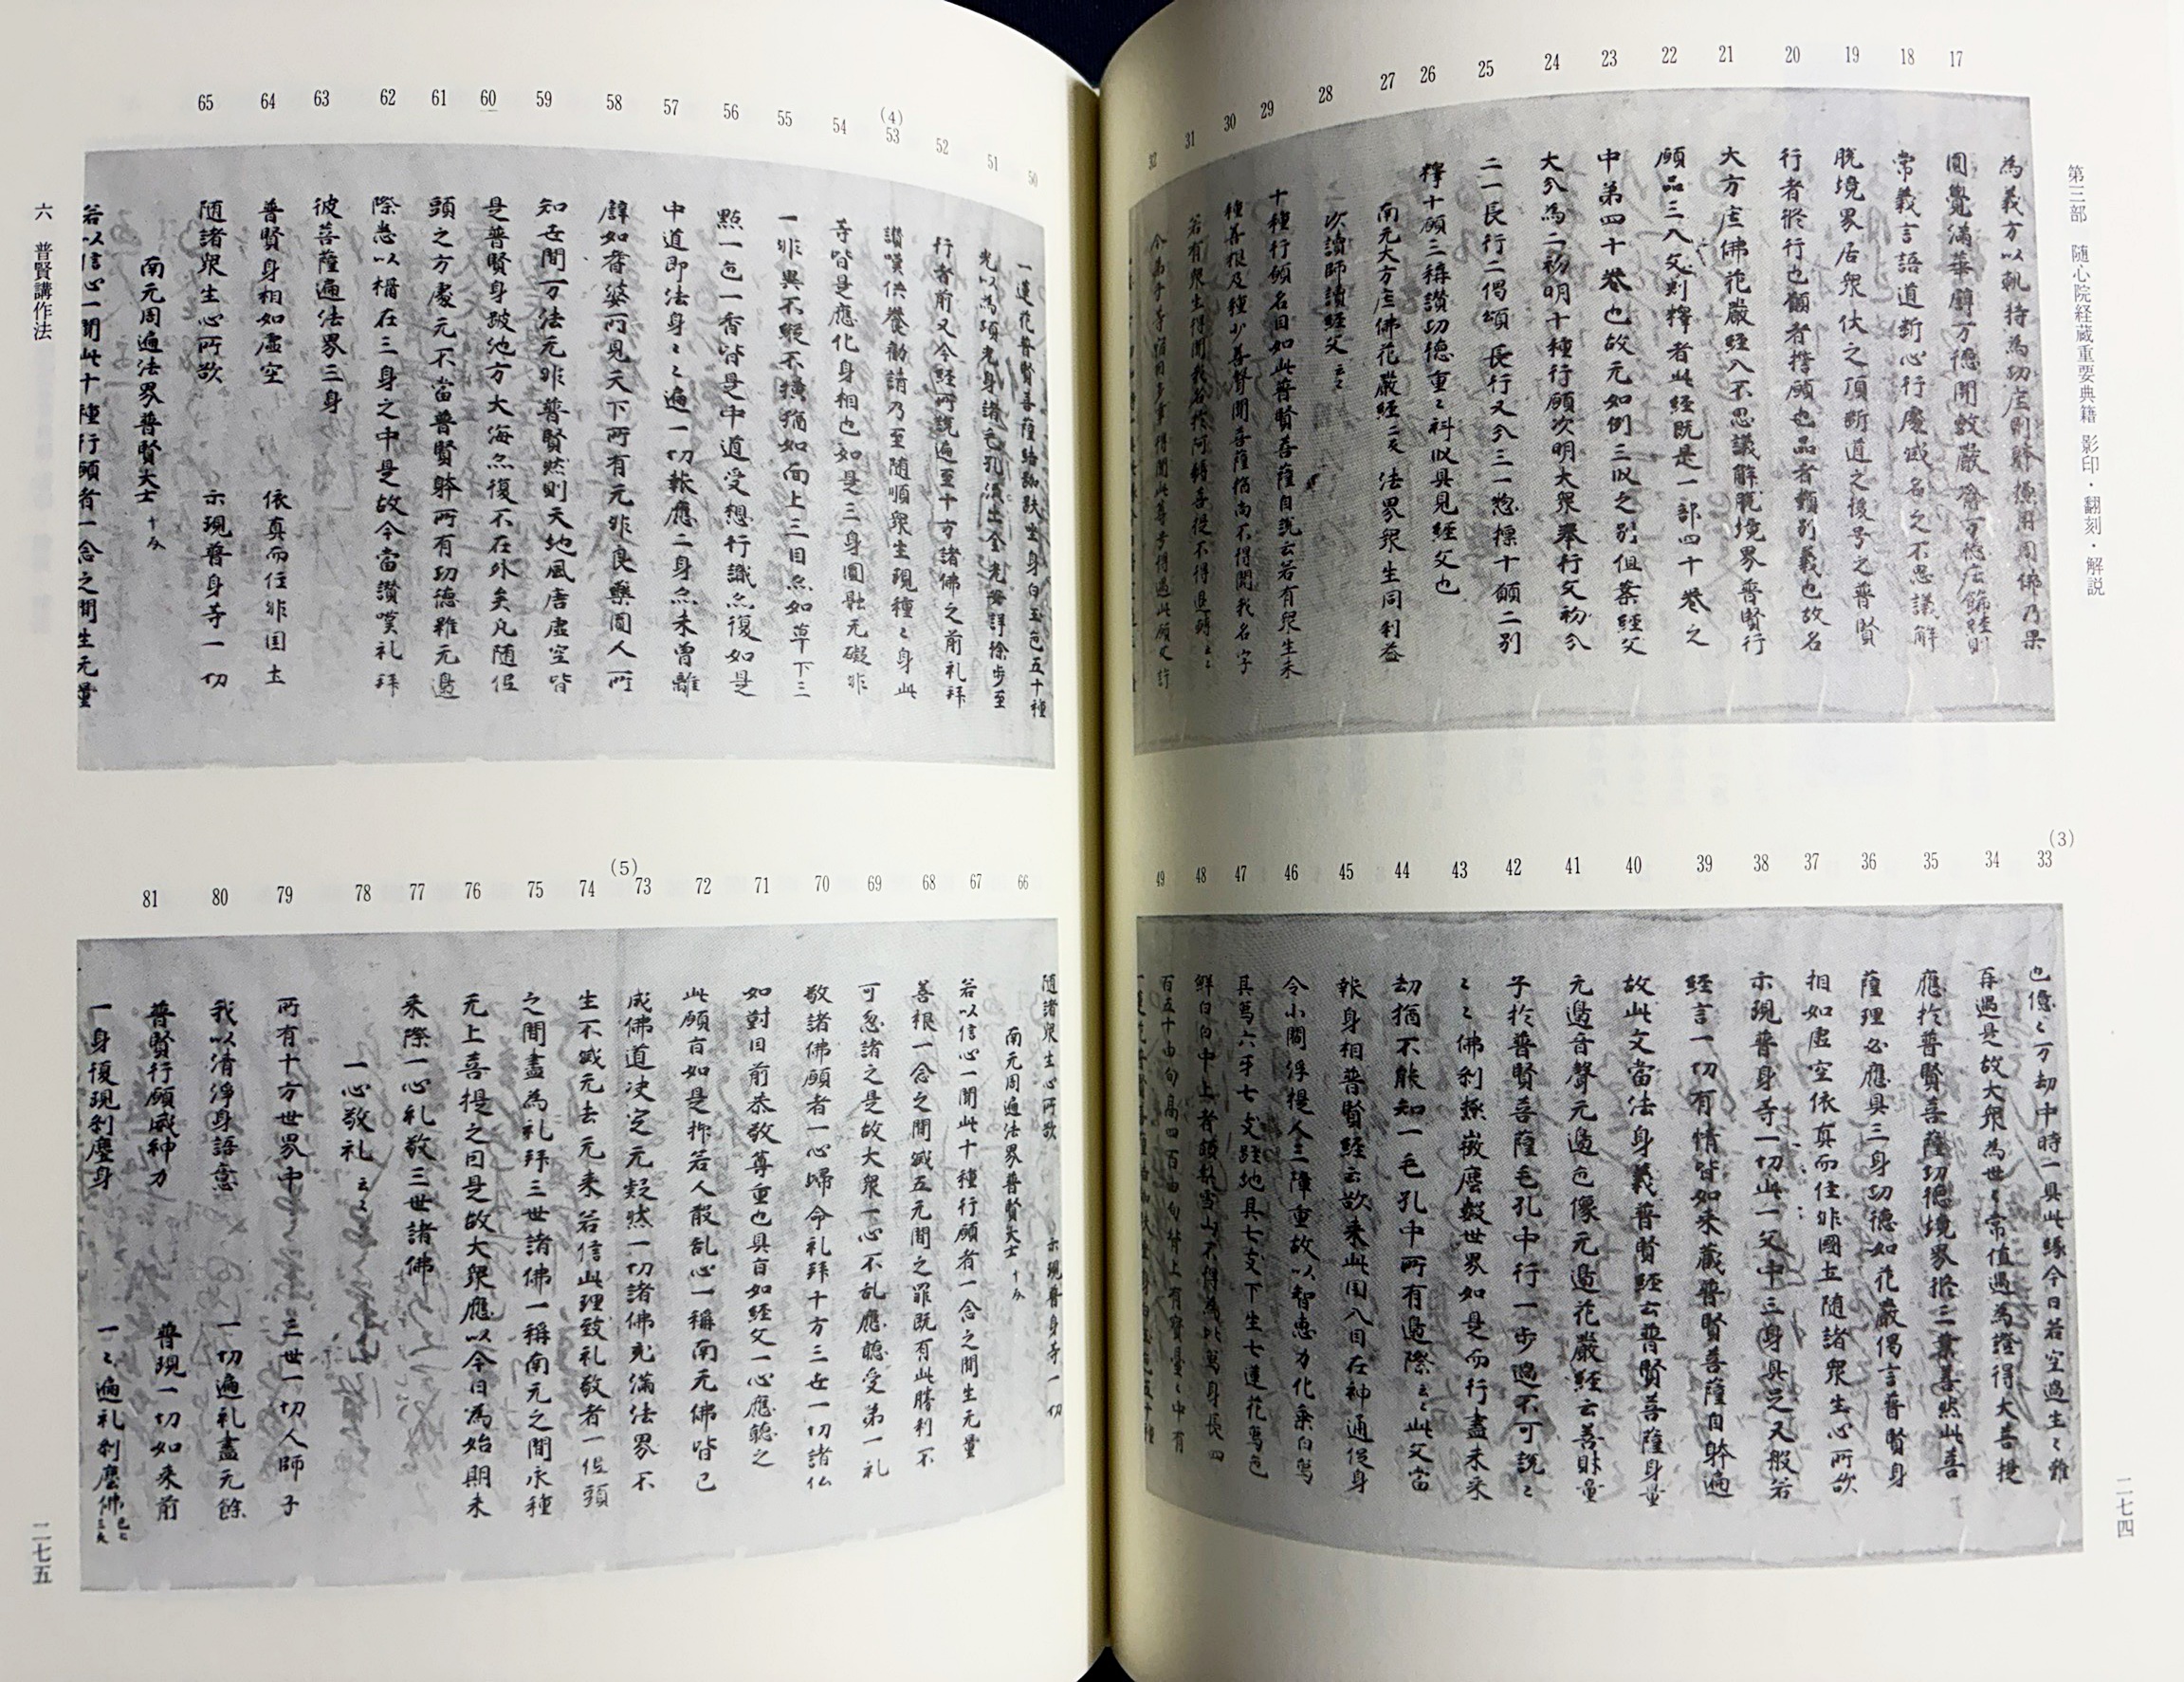 第三部 随心院経蔵重要典籍 影印・翻刻・解説
17
18
19
20
21
22
23
24
25
26
27
28
29
30
31
32
為義方以軌持為功
常義言語道断心行處滅名之不思議解
脱境界居衆伏之頂断道之後号之普賢
行者修行也願者擔願也品者類別義也故名
大方广佛花嚴経入不思議解脱境界普賢行
願品三入文判釋者此経既是一部四十巻之
中第四十巻也故元如例三以之別但案経文
大分為二初明十種行願次明大衆奉行文初分
二一長行二偈頌長行又分三一惣標十願二別
釋十願三稱讃功徳重〻科以具見経文也
南元大方广佛花嚴経二反 法界衆生同利益
次讀師讀経文云〻
十種行願名目如此普賢菩薩自説云若有衆生未
種善根及種少善聲聞菩薩猶尚不得聞我名字
若有衆生得聞我名於阿耨菩提不得退転云〻
(3)
33
34
35
36
37
38
39
40
41
42
43
44
45
46
47
48
49
也億〻万劫中時一具此縁今日若空過生〻難
再遇是故大衆為世〻常值遇為證得大菩提
應於普賢菩薩功徳境界擔三業善然此菩
薩理必應具三身功徳如花嚴偈言普賢身
相如虚空依真而住非國土随諸衆生心所欲
示現普身等一切此一文中三身具足又般若
経言一切有情皆如来蔵普賢菩薩自躰遍
故此文當法身義普賢経云普賢菩薩身量
元邊音聲元邊色像元邊花嚴経云善財童
子於普賢菩薩毛孔中行一歩過不可説〻
〻〻佛刹極微塵數世界如是而行盡未来
劫猶不能知一毛孔中所有邊際云〻此文當
報身相普賢経云欲来此国入目在神通促身
令小閻浮提人三障重故以智恵力化乗白鳥
其鳥六牙七支跓地具七支下生七蓮花鳥色
鮮白白中上者頗梨雪山不得為比鳥身長四
百五十由旬高四百由旬
二七四
50
51
52
(4)
53
54
55
56
57
58
59
60
61
62
63
64
65
一蓮花普賢菩薩結跏趺坐身白玉色五十種
光以為項光身諸毛孔流出金光安詳徐歩至
行者前又今経所説遍至十方諸佛之前礼拝
讃嘆供養勧請乃至随順衆生現種〻身此
等皆是應化身相也如是三身圓融元礙非
一非異不縦不横猶如面上三目亦如草下三
點一色一香皆是中道受想行識亦復如是
中道即法身〻〻遍一切報應二身亦未曾離
譚如耆婆所見天下所有元非良藥圓人所
知世間万法元非普賢然則天地風唐虚空皆
是普賢身跛池方大海亦復不在外矣凡随但
頭之方處元不當普賢躰所有功徳雖元邊
際悉以楢在三身之中是故今當讃嘆礼拝
彼菩薩遍法界三身
普賢身相如虚空 依真而住非国土
随諸衆生心所欲 示現普身等一切
南元周遍法界普賢大士 十反
若以信心一聞此十種行願者一念之間生元量
66
67
68
69
70
71
72
73
(5)
74
75
76
77
78
79
80
81
随諸衆生心所欲 示現普身等一切
南元周遍法界普賢大士 十反
若以信心一聞此十種行願者一念之間生元量
善根一念之間滅五元間之罪既有此勝利不
可忽諸之是故大衆一心不乱應聴受第一礼
敬諸佛願者一心歸命礼拜十方三世一切諸仏
如對目前恭敬尊重也具百如経文一心應聴之
此願百如是抑若人散乱心一稱南元佛皆已
成佛道决定元疑然一切諸佛充滿法界不
生不滅元去元来若信此理致礼敬者一但頭
之間盡為礼拝三世諸佛一稱南元之間永種
元上喜提之因是故大衆應以今日為始期未
来際一心礼敬三世諸佛
一心敬礼 云〻
所有十方世界中 三世一切人師子
我以清淨身語意 一切遍礼盡元餘
普賢行願威神力 普現一切如来前
一身復現刹塵身 一〻遍礼刹塵佛
六 普賢講作法
二七五